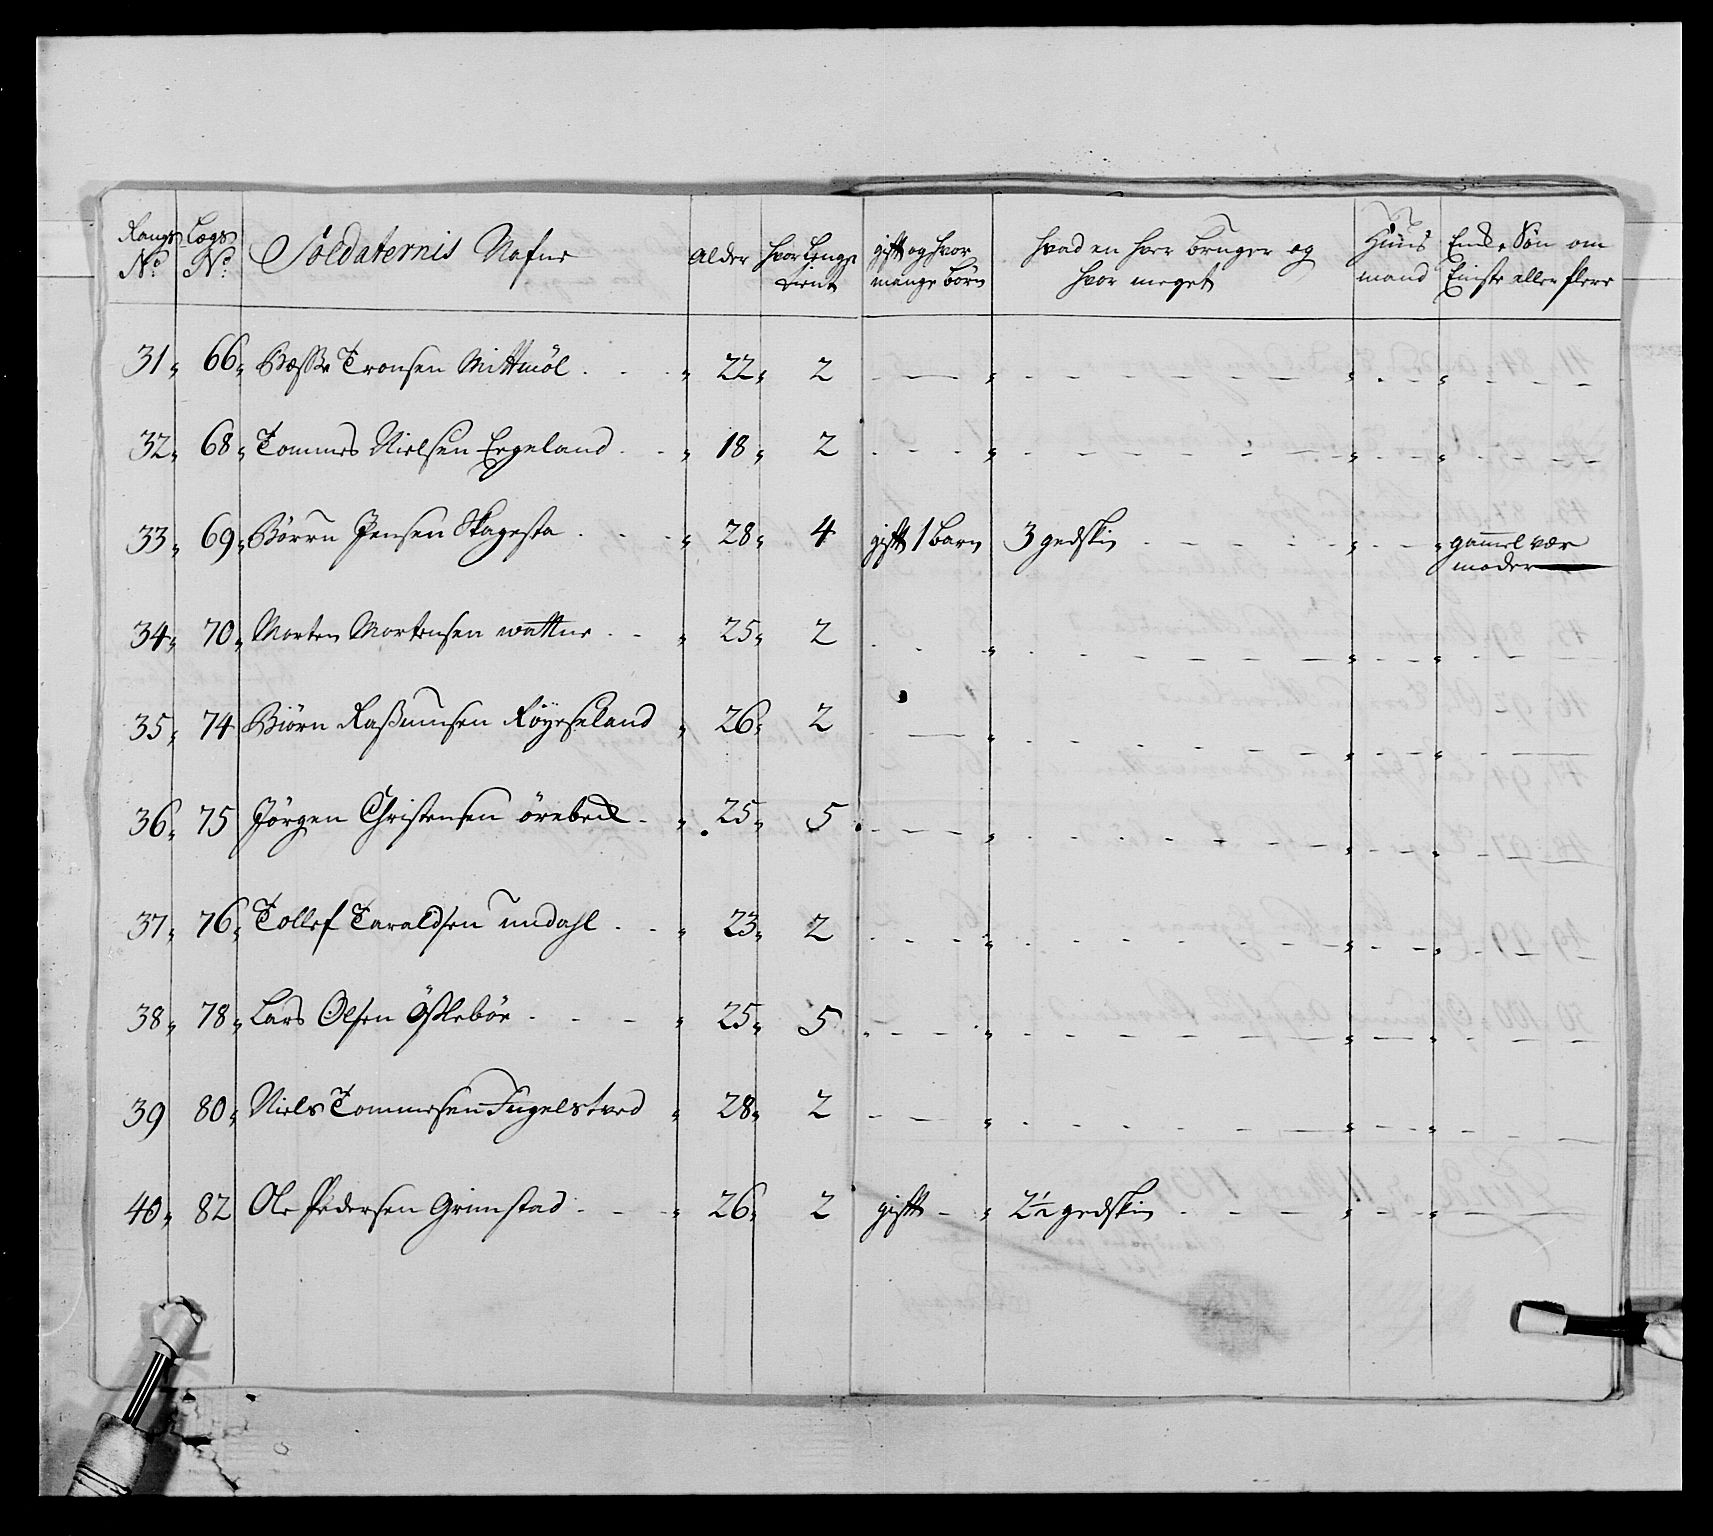 Rangs No Lægs No Soldaternis Nafne Alder hvor Lenge tient gift og hvor mange børn hvad en hver bruger og hvor meget Huus mand Enke Søn om Eniste eller flere
31 66 Tronsen 22 2
32 68 Tommes Nielsen Egeland 18 2
33 69 Børrn Jensen Skagesta 28 4 gift 1 barn 3 gedskin gammel vær
moder
34 70 Morten Mortensen wattne 25 2
35 74 Biørn Raßmusen Røyseland 26 2
36 75 Jørgen Christensen örebeck 25 5
37 76 Tollef Taraldsen undahl 23 2
38 78 Lars Olsen Östebör 25 5
39 80 Niels Tommesen Fugelstved 28 2
40 82 Ole Pedersen Grimstad 26 2 gift 2½ gedskin